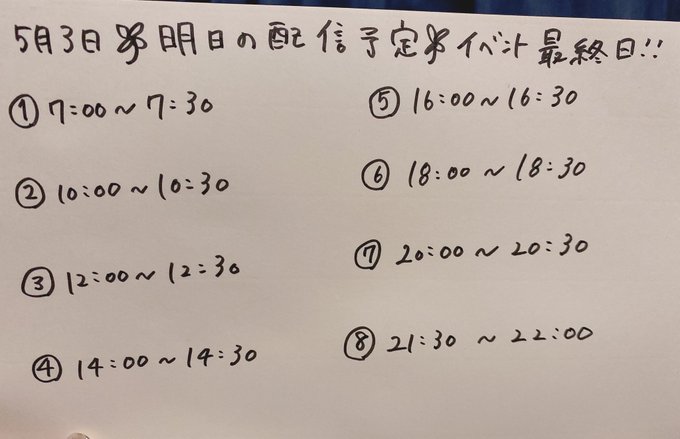 5月3日 ꕤ 明日の配信予定 ꕤ イベント最終日!!
① 7:00～7:30
② 10:00～10:30
③ 12:00～12:30
④ 14:00～14:30
⑤ 16:00～16:30
⑥ 18:00～18:30
⑦ 20:00～20:30
⑧ 21:30～22:00